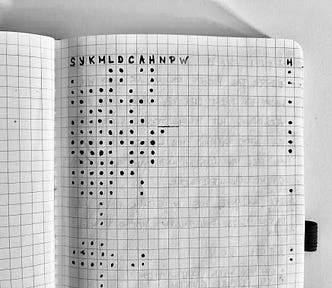 S Y K M L D C A H N P W H